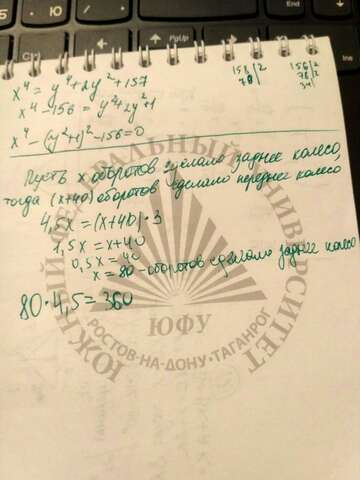 x⁴ = y⁴+2y²+157
x⁴-156 = y⁴+2y²+1
x⁴-(y²+1)²-156=0
156|2
78|2
Пусть x оборотов сделало заднее колесо,
тогда (x+40) оборотов сделало переднее колесо
4,5x = (x+40)·3
1,5x = x+40
0,5x = 40
x = 80 - оборотов сделало заднее колесо
80·4,5 = 360
ЮЖНЫЙ ФЕДЕРАЛЬНЫЙ УНИВЕРСИТЕТ
ЮФУ
РОСТОВ-НА-ДОНУ · ТАГАНРОГ
PgUp